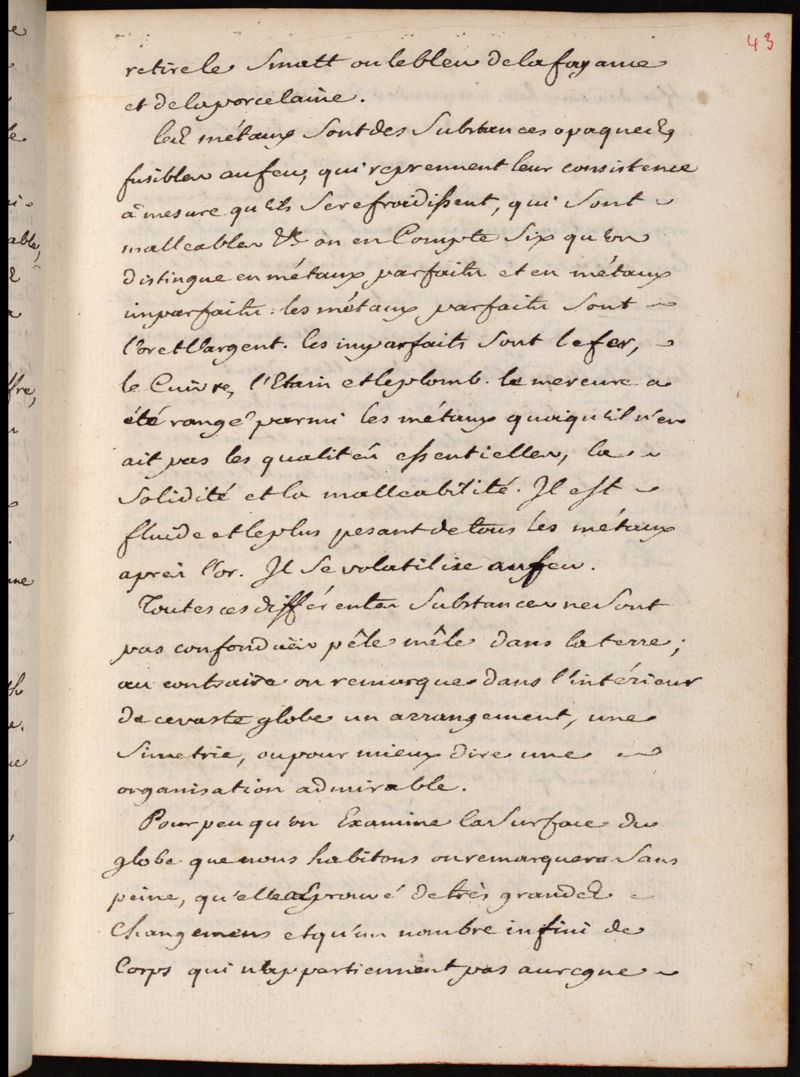 43
retire le Smalt ou le bleu de la fayance
et de la porcelaine.
les métaux Sont des Substances opaques,
fusibles au feu, qui reprennent leur consistence
à mesure qu'ils Se refroidissent, qui Sont
malleables &c on en Compte Six qu'on
distingue en métaux parfaits et en métaux
imparfaits : les métaux parfaits Sont
l'or et l'argent. les imparfaits Sont le fer,
le Cuivre, l'Etain et le plomb. le mercure a
été rangé parmi les métaux quoiqu'il n'en
ait pas les qualités essentielles, la
Solidité et la malleabilité. Il est
fluide et le plus pesant de tous les métaux
après l'or. Il Se volatilise au feu.
Toutes ces différentes Substances ne Sont
pas confondues pêle mêle dans la terre ;
au contraire on remarque dans l'intérieur
de ce vaste globe un arrangement, une
Simetrie, ou pour mieux dire une
organisation admirable.
Pour peu qu'on Examine la Surface du
globe que nous habitons on remarquera Sans
peine, qu'elle a Eprouvé de très grandes
Changemens et qu'un nombre infini de
Corps qui n'appartiennent pas au regne
able,
ffre,